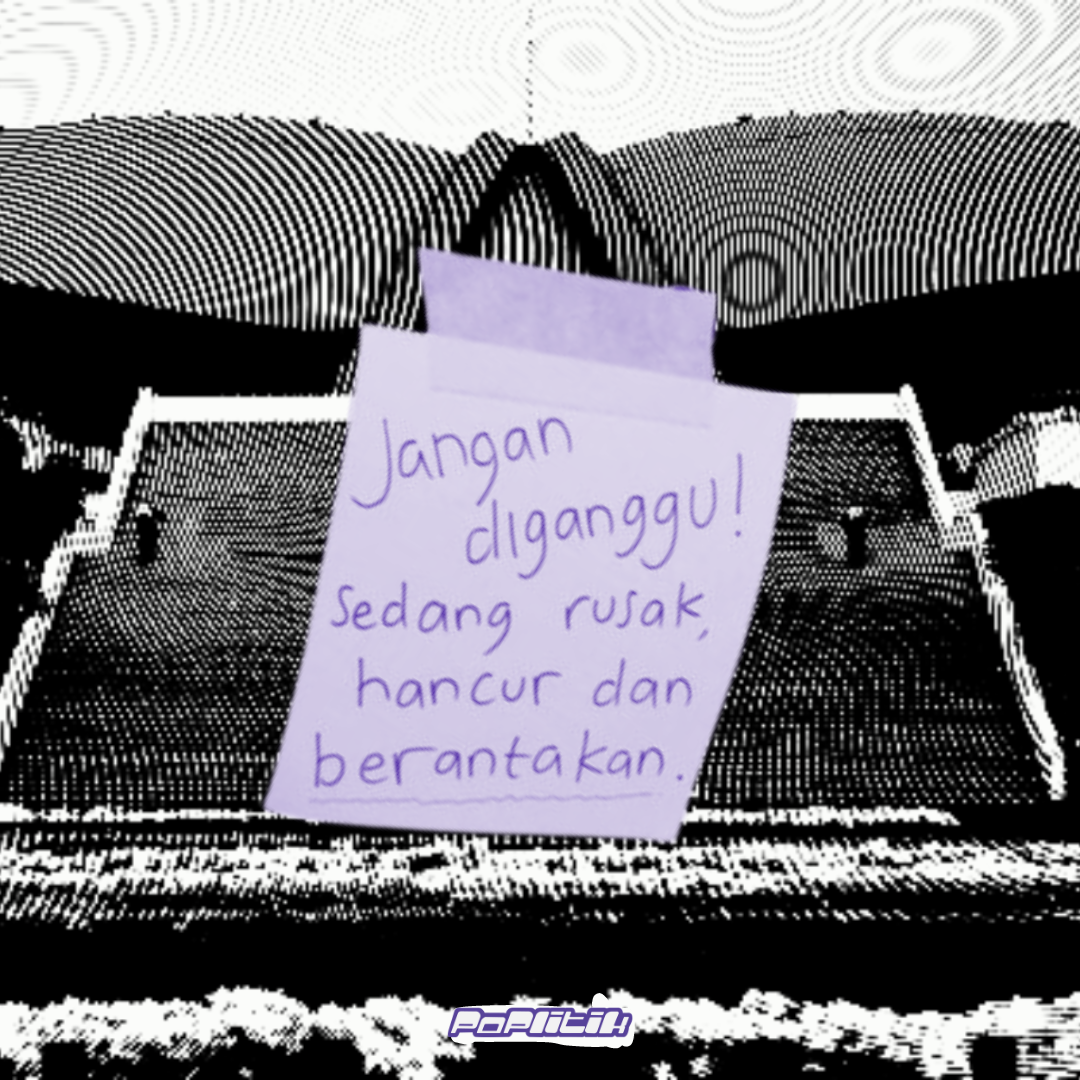 Jangan
diganggu!
Sedang rusak,
hancur dan
berantakan.
PoPlitik